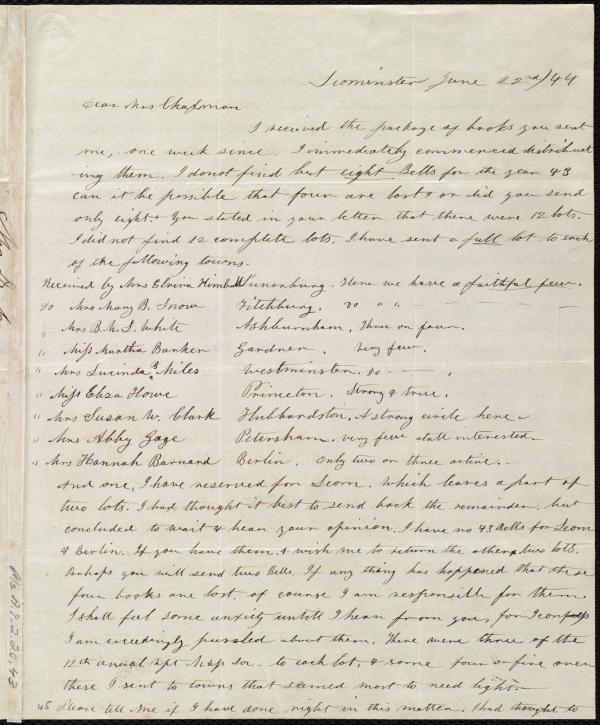 Leominster June 22nd/44
Dear Mrs Chapman
I received the package of books you sent
me, one week since. I immediately commenced distribut
ing them. I do not find but eight Bells for the year 43
can it be possible that four are lost? or did you send
only eight? You stated in your letter that there were 12 lots.
I did not find 12 complete lots. I have sent a full lot to each
of the following towns.
Received by Mrs Elvira Kimball Lunenburg. Here we have a faithful few.
do Mrs Mary B. Snow Fitchburg. do " "
" Mrs B. M. S. White Ashburnham, Three or four.
" Miss Martha Barker Gardner. Very few.
" Mrs Lucinda Miles Westminster. do
" Miss Eliza Howe Princeton. Strong & true.
" Mrs Susan W. Clark Hubbardston. A strong circle here
" Mrs Abby Gage Petersham. very few atall interested.
" Mrs Hannah Barnard Berlin. Only two or three active.
And one, I have reserved for Leom. Which leaves a part of
two lots. I had thought it best to send back the remainder, but
concluded to wait & hear your opinion. I have no 43 Bells for Leom
& Berlin. If you have them, & wish me to return the other two lots.
Perhaps you will send two Bells. If any thing has happened that these
four books are lost, of course I am responsible for them.
I shall feel some anxity untill I hear from you, for I confess
I am exceedingly puzzled about them. There were three of the
12th annual Rept Mass Soc - to each lot, & some four or five over
these I sent to towns that seemed most to need light
Please tell me if I have done right in this matter. I had thought to
Ms.A.9.2.20.43